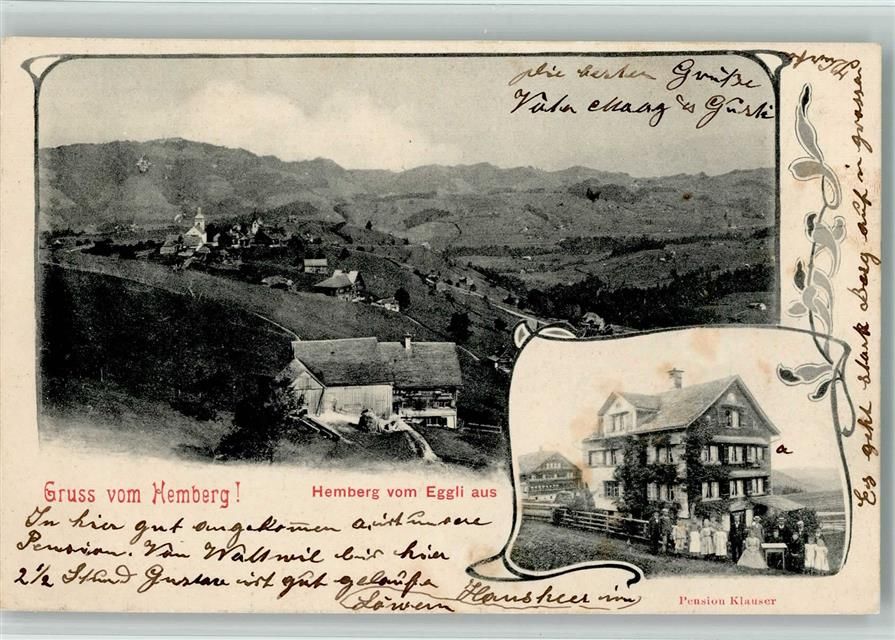 die besten Grüße
Vater Maag u Gusti
Gruss vom Hemberg!
Hemberg vom Eggli aus
In hier gut angekomen a ist unsere
Pension. Von Wattwil bis hier
2 1/2 Stund Gustav ist gut gelaufe
Hausheer im
Löwen
a
Pension Klauser
Es geht stark Berg auf in grosser